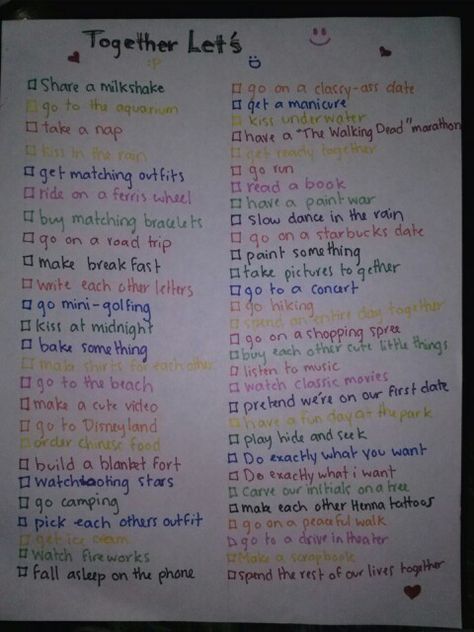 Together Let's
:P
:D
Share a milkshake
go to the aquarium
take a nap
kiss in the rain
get matching outfits
ride on a ferris wheel
buy matching bracelets
go on a road trip
make breakfast
write each other letters
go mini-golfing
kiss at midnight
bake something
make shirts for each other
go to the beach
make a cute video
go to Disneyland
order chinese food
build a blanket fort
Watch stars
go camping
pick each others outfit
get ice cream
Watch fireworks
fall asleep on the phone
go on a classy-ass date
get a manicure
kiss underwater
have a "The Walking Dead" marathon
get ready together
go run
read a book
have a paint war
slow dance in the rain
go on a starbucks date
paint something
take pictures together
go to a concert
go hiking
spend an entire day together
go on a shopping spree
buy each other cute little things
listen to music
watch classic movies
pretend we're on our first date
have a fun day at the park
play hide and seek
Do exactly what you want
Do exactly what i want
Carve our initials on a tree
make each other Henna tattoos
go on a peaceful walk
go to a drive in theater
Make a scrapbook
spend the rest of our lives together